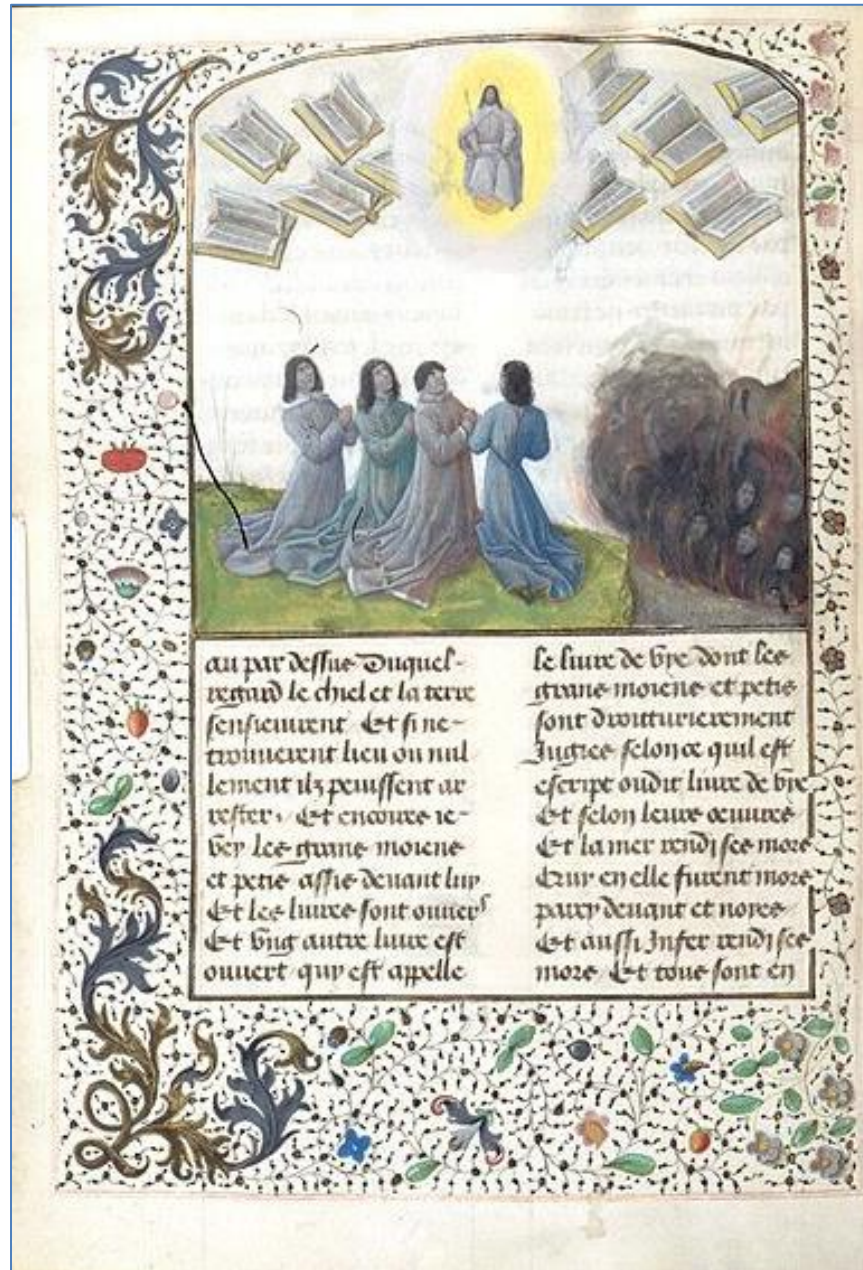 au par dessus Duquel-
regard le chiel et la terre
sensieuvent Et si ne-
trouverent lieu ou nul
lement ilz peussent ar
rester, Et encores ie-
vey les grans moiens
et petis assis devant luy
Et les livres sont ouvers
Et vng autre livre est
ouvert quy est appelle
le livre de vye dont les
grans moiens et petis
sont droitturierement
Jugies selon ce quil est
escript oudit livre de vye
Et selon leurs oeuvres
Et la mer rendi ses mors
Quy en elle furent mors
par cy devant et noyes
Et aussi Infer rendi ses
mors Et tous sont en